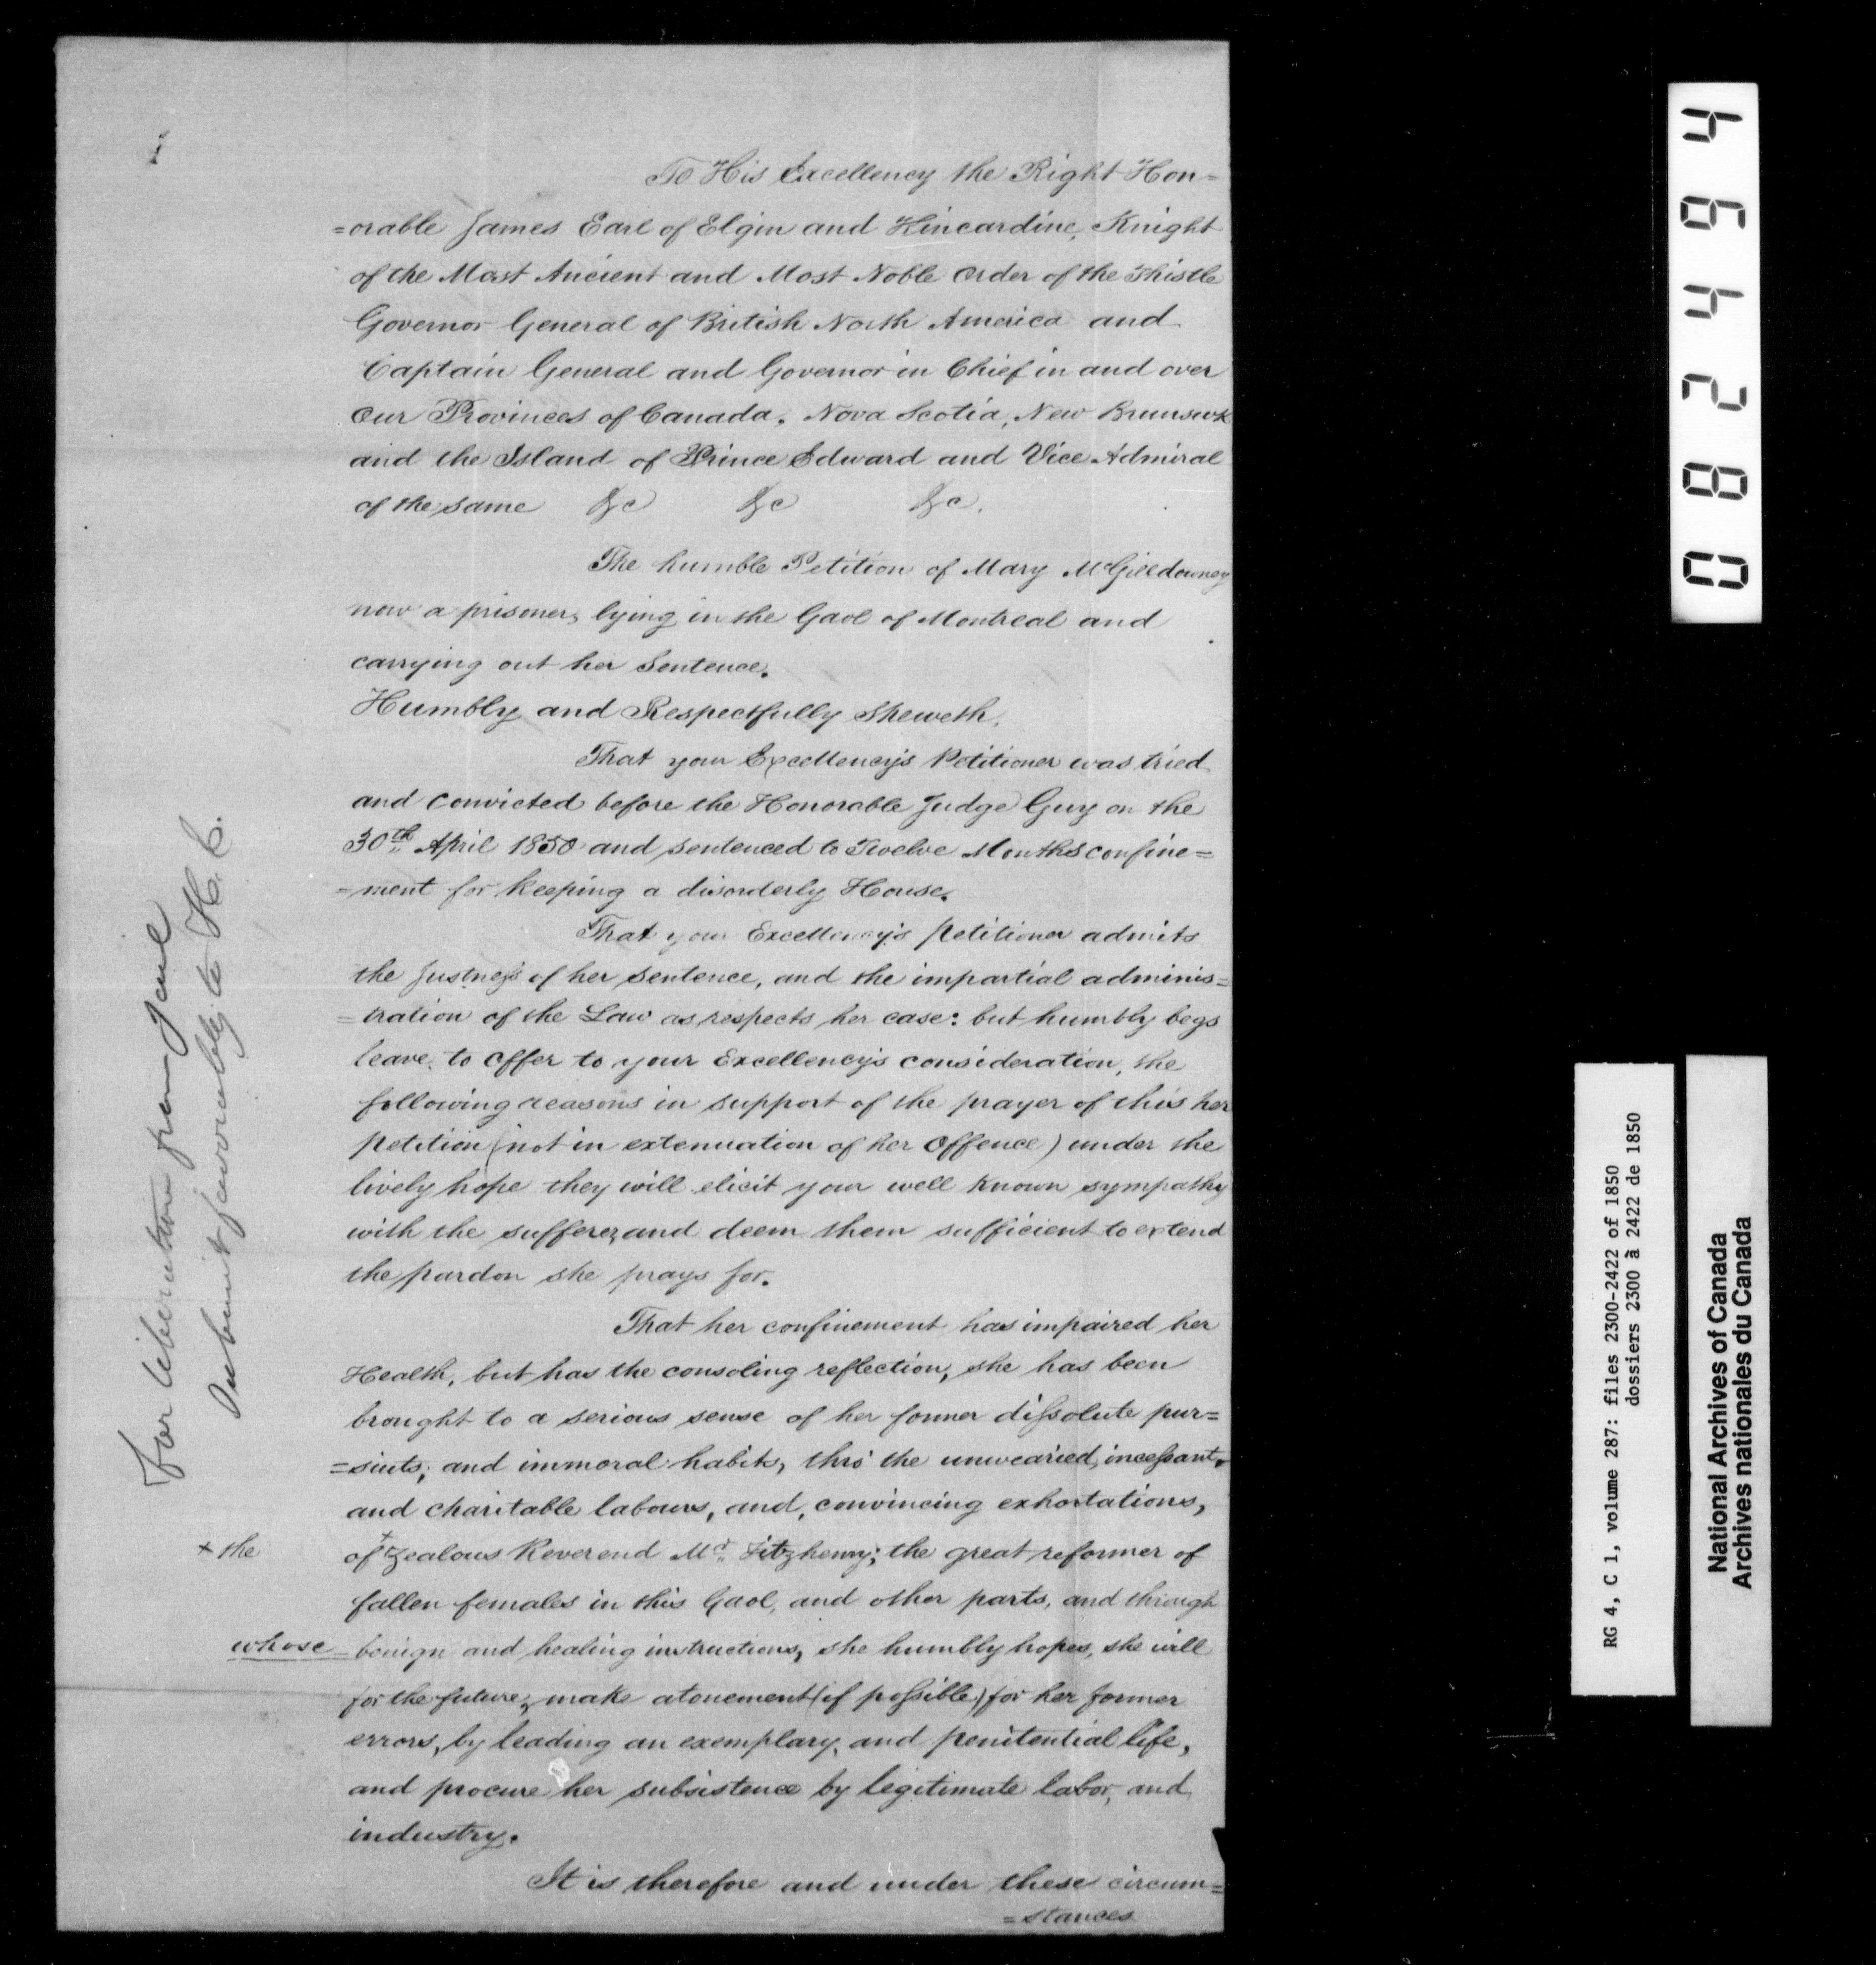 To His Excellency the Right Hon=
=orable James Earl of Elgin and Kincardine, Knight
of the Most Ancient and Most Noble Order of the Thistle
Governor General of British North America and
Captain General and Governor in Chief in and over
Our Provinces of Canada, Nova Scotia, New Brunswk
and the Island of Prince Edward and Vice Admiral
of the same &c &c &c.
The humble Petition of Mary McGilldowney
now a prisoner, lying in the Gaol of Montreal and
carrying out her Sentence.
Humbly and Respectfully Sheweth,
That your Excellency's Petitioner was tried
and convicted before the Honorable Judge Guy on the
30th April 1850 and sentenced to Twelve Months confine=
=ment for keeping a disorderly House.
That your Excellency's petitioner admits
the justness of her sentence, and the impartial adminis=
=tration of the Law as respects her case: but humbly begs
leave, to offer to your Excellency's consideration, the
following reasons in support of the prayer of this her
petition (not in extenuation of her Offence) under the
lively hope they will elicit your well known sympathy
with the sufferer, and deem them sufficient to extend
the pardon she prays for.
That her confinement has impaired her
Health, but has the consoling reflection, she has been
brought to a serious sense of her former dissolute pur=
=suits; and immoral habits, thro' the unwearied, incessant,
and charitable labours, and, convincing exhortations,
+ the
of + zealous Reverend Mr. Fitzhenry; the great reformer of
fallen females in this Gaol, and other parts, and through
whose benign and healing instructions, she humbly hopes, she will
for the future, make atonement (if possible) for her former
errors, by leading an exemplary, and penitential life,
and procure her subsistence by legitimate labor, and
industry.
It is therefore and under these circum=
=stances
For liberation from gaol
Submit favourably to H. E.
082494
RG 4, C 1, volume 287: files 2300-2422 of 1850
dossiers 2300 à 2422 de 1850
National Archives of Canada
Archives nationales du Canada